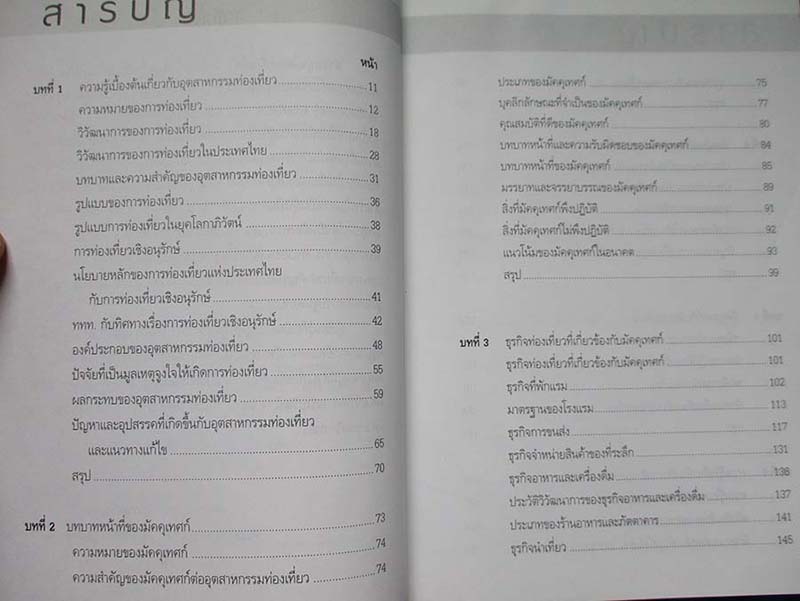 สารบัญ
หน้า
บทที่ 1 ความรู้เบื้องต้นเกี่ยวกับอุตสาหกรรมท่องเที่ยว 11
ความหมายของการท่องเที่ยว 12
วิวัฒนาการของการท่องเที่ยว 18
วิวัฒนาการของการท่องเที่ยวในประเทศไทย 28
บทบาทและความสำคัญของอุตสาหกรรมท่องเที่ยว 31
รูปแบบของการท่องเที่ยว 36
รูปแบบการท่องเที่ยวในยุคโลกาภิวัตน์ 38
การท่องเที่ยวเชิงอนุรักษ์ 39
นโยบายหลักของการท่องเที่ยวแห่งประเทศไทย
กับการท่องเที่ยวเชิงอนุรักษ์ 41
ททท. กับทิศทางเรื่องการท่องเที่ยวเชิงอนุรักษ์ 42
องค์ประกอบของอุตสาหกรรมท่องเที่ยว 48
ปัจจัยที่เป็นมูลเหตุจูงใจให้เกิดการท่องเที่ยว 55
ผลกระทบของอุตสาหกรรมท่องเที่ยว 59
ปัญหาและอุปสรรคที่เกิดขึ้นกับอุตสาหกรรมท่องเที่ยว
และแนวทางแก้ไข 65
สรุป 70
บทที่ 2 บทบาทหน้าที่ของมัคคุเทศก์ 73
ความหมายของมัคคุเทศก์ 74
ความสำคัญของมัคคุเทศก์ต่ออุตสาหกรรมท่องเที่ยว 74
ประเภทของมัคคุเทศก์ 75
บุคลิกลักษณะที่จำเป็นของมัคคุเทศก์ 77
คุณสมบัติที่ดีของมัคคุเทศก์ 80
บทบาทหน้าที่และความรับผิดชอบของมัคคุเทศก์ 84
บทบาทหน้าที่ของมัคคุเทศก์ 85
มรรยาทและจรรยาบรรณของมัคคุเทศก์ 89
สิ่งที่มัคคุเทศก์พึงปฏิบัติ 91
สิ่งที่มัคคุเทศก์ไม่พึงปฏิบัติ 92
แนวโน้มของมัคคุเทศก์ในอนาคต 93
สรุป 99
บทที่ 3 ธุรกิจท่องเที่ยวที่เกี่ยวข้องกับมัคคุเทศก์ 101
ธุรกิจท่องเที่ยวที่เกี่ยวข้องกับมัคคุเทศก์ 101
ธุรกิจที่พักแรม 102
มาตรฐานของโรงแรม 113
ธุรกิจการขนส่ง 117
ธุรกิจจำหน่ายสินค้าของที่ระลึก 131
ธุรกิจอาหารและเครื่องดื่ม 136
ประวัติวิวัฒนาการของธุรกิจอาหารและเครื่องดื่ม 137
ประเภทของร้านอาหารและภัตตาคาร 141
ธุรกิจนำเที่ยว 145